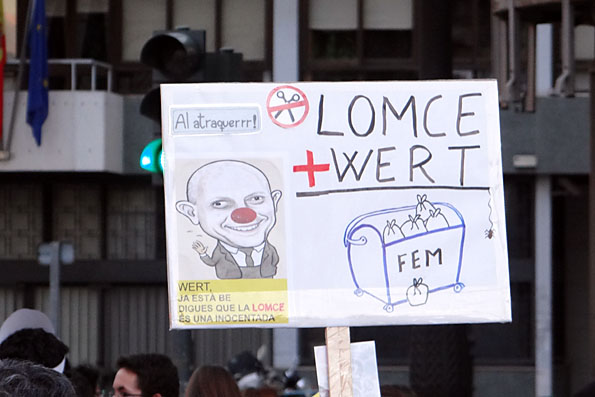 Al atraquerrr!
LOMCE
+WERT
FEM
WERT,
JA ESTÀ BE
DIGUES QUE LA LOMCE
ÉS UNA INOCENTADA